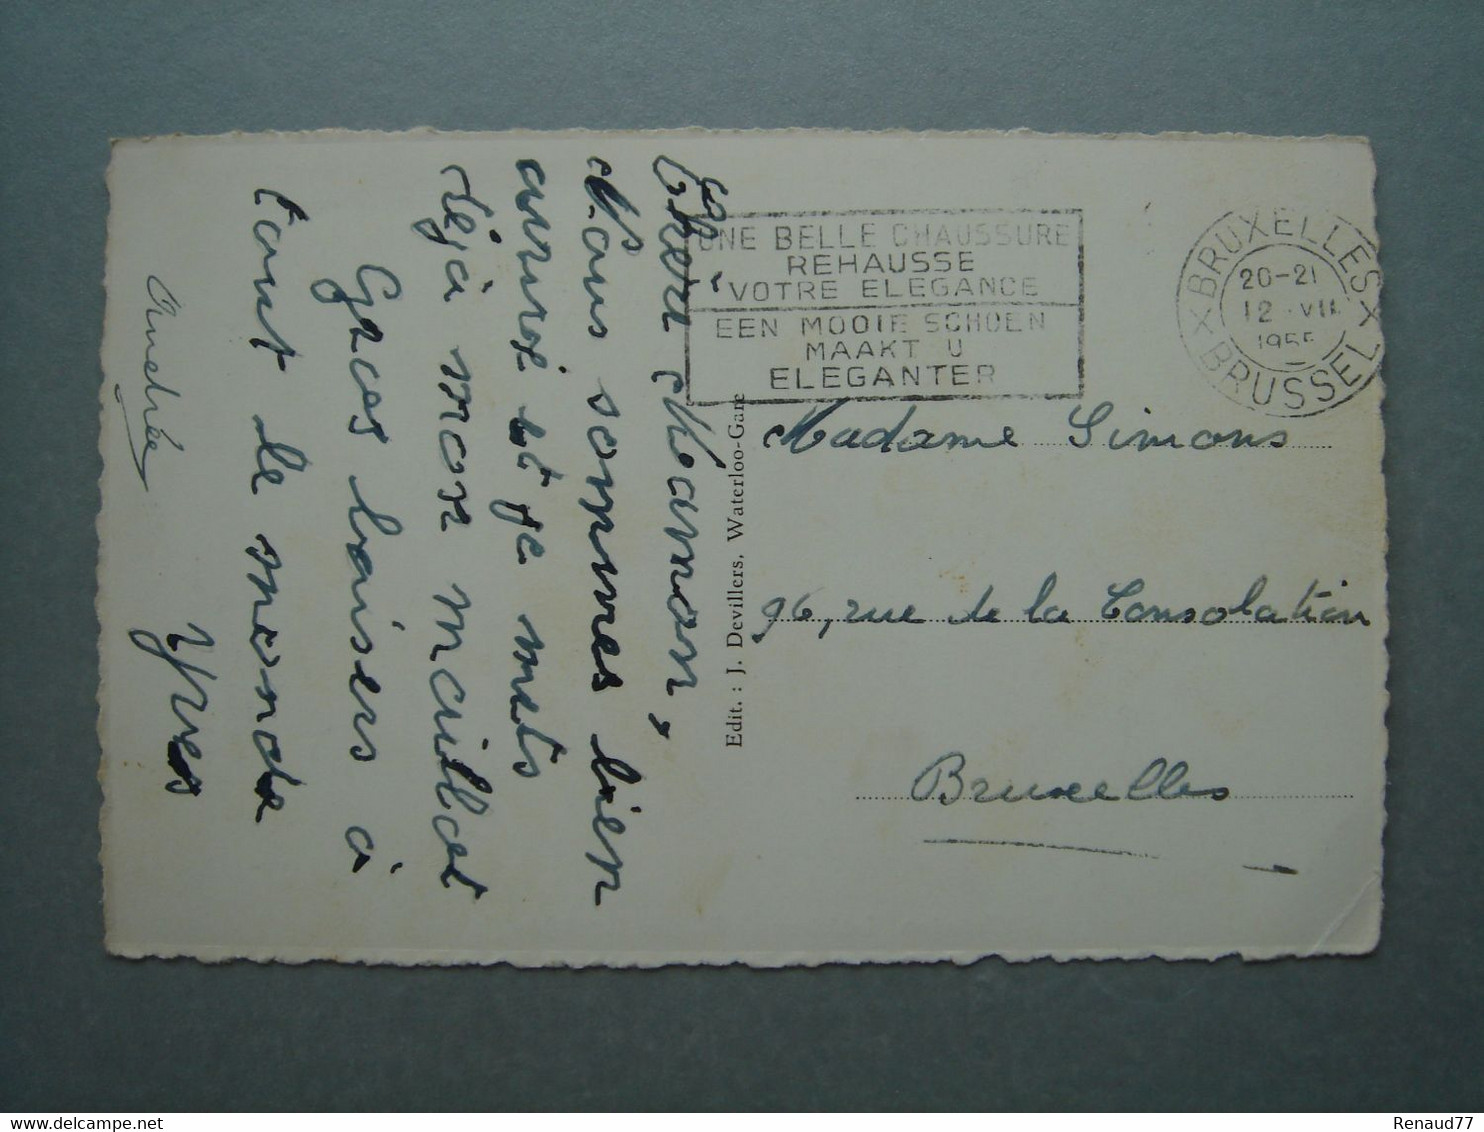 Chère Maman,
Nous sommes bien
arrivés et je mets
déjà mon maillot
Gros baisers à
tout le monde
Yves
Andrée
Edit. : J. Devillers, Waterloo-Gare
UNE BELLE CHAUSSURE
REHAUSSE
VOTRE ELEGANCE
EEN MOOIE SCHOEN
MAAKT U
ELEGANTER
X BRUXELLES X BRUSSEL
20-21
12 . VII.
1955
Madame Simons
96, rue de la Consolation
Bruxelles
Renaud77